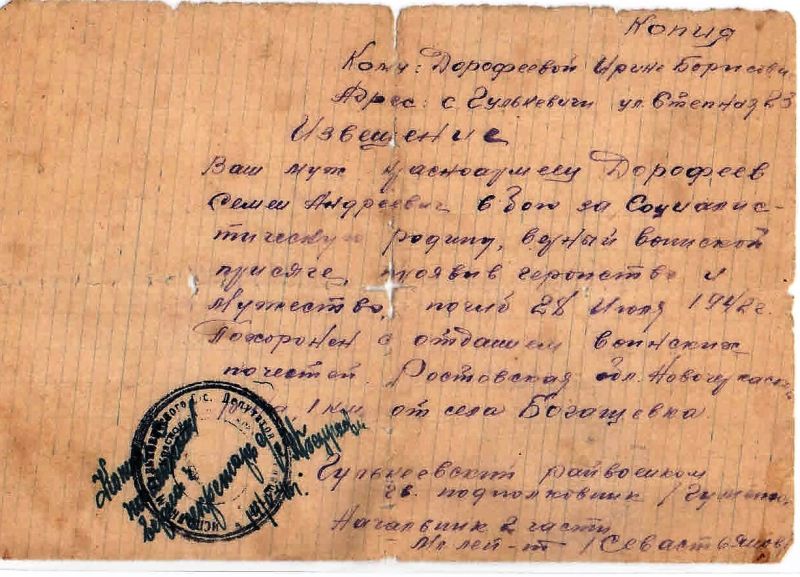 Копия
Кому: Дорофеевой Ирине Борисовн
Адрес: с Гулькевичи ул. Степная 23
Извещение
Ваш муж красноармеец Дорофеев
Семен Андреевич в бою за Социалис-
тическую родину, верный воинской
присяге, проявив геройство и
мужество, погиб 28 июля 1942г.
Похоронен с отданием воинских
почестей. Ростовская обл. Новочеркасск
1 км от села Богащевка
Гулькевский райвоенком
гв. подполковник /Гутник
Начальник 2 части
Мл лей-т /Севастьянов
Депутатов